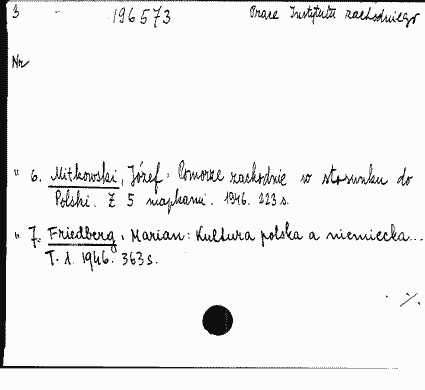 3 - 196573 Prace Instytutu zachodniego
Nr
" 6. Mitkowski, Józef: Pomorze zachodnie w stosunku do
Polski. Z 5 mapkami. 1946. 223 s.
" 7. Friedberg, Marian: Kultura polska a niemiecka...
T. 1. 1946. 363 s.
./.